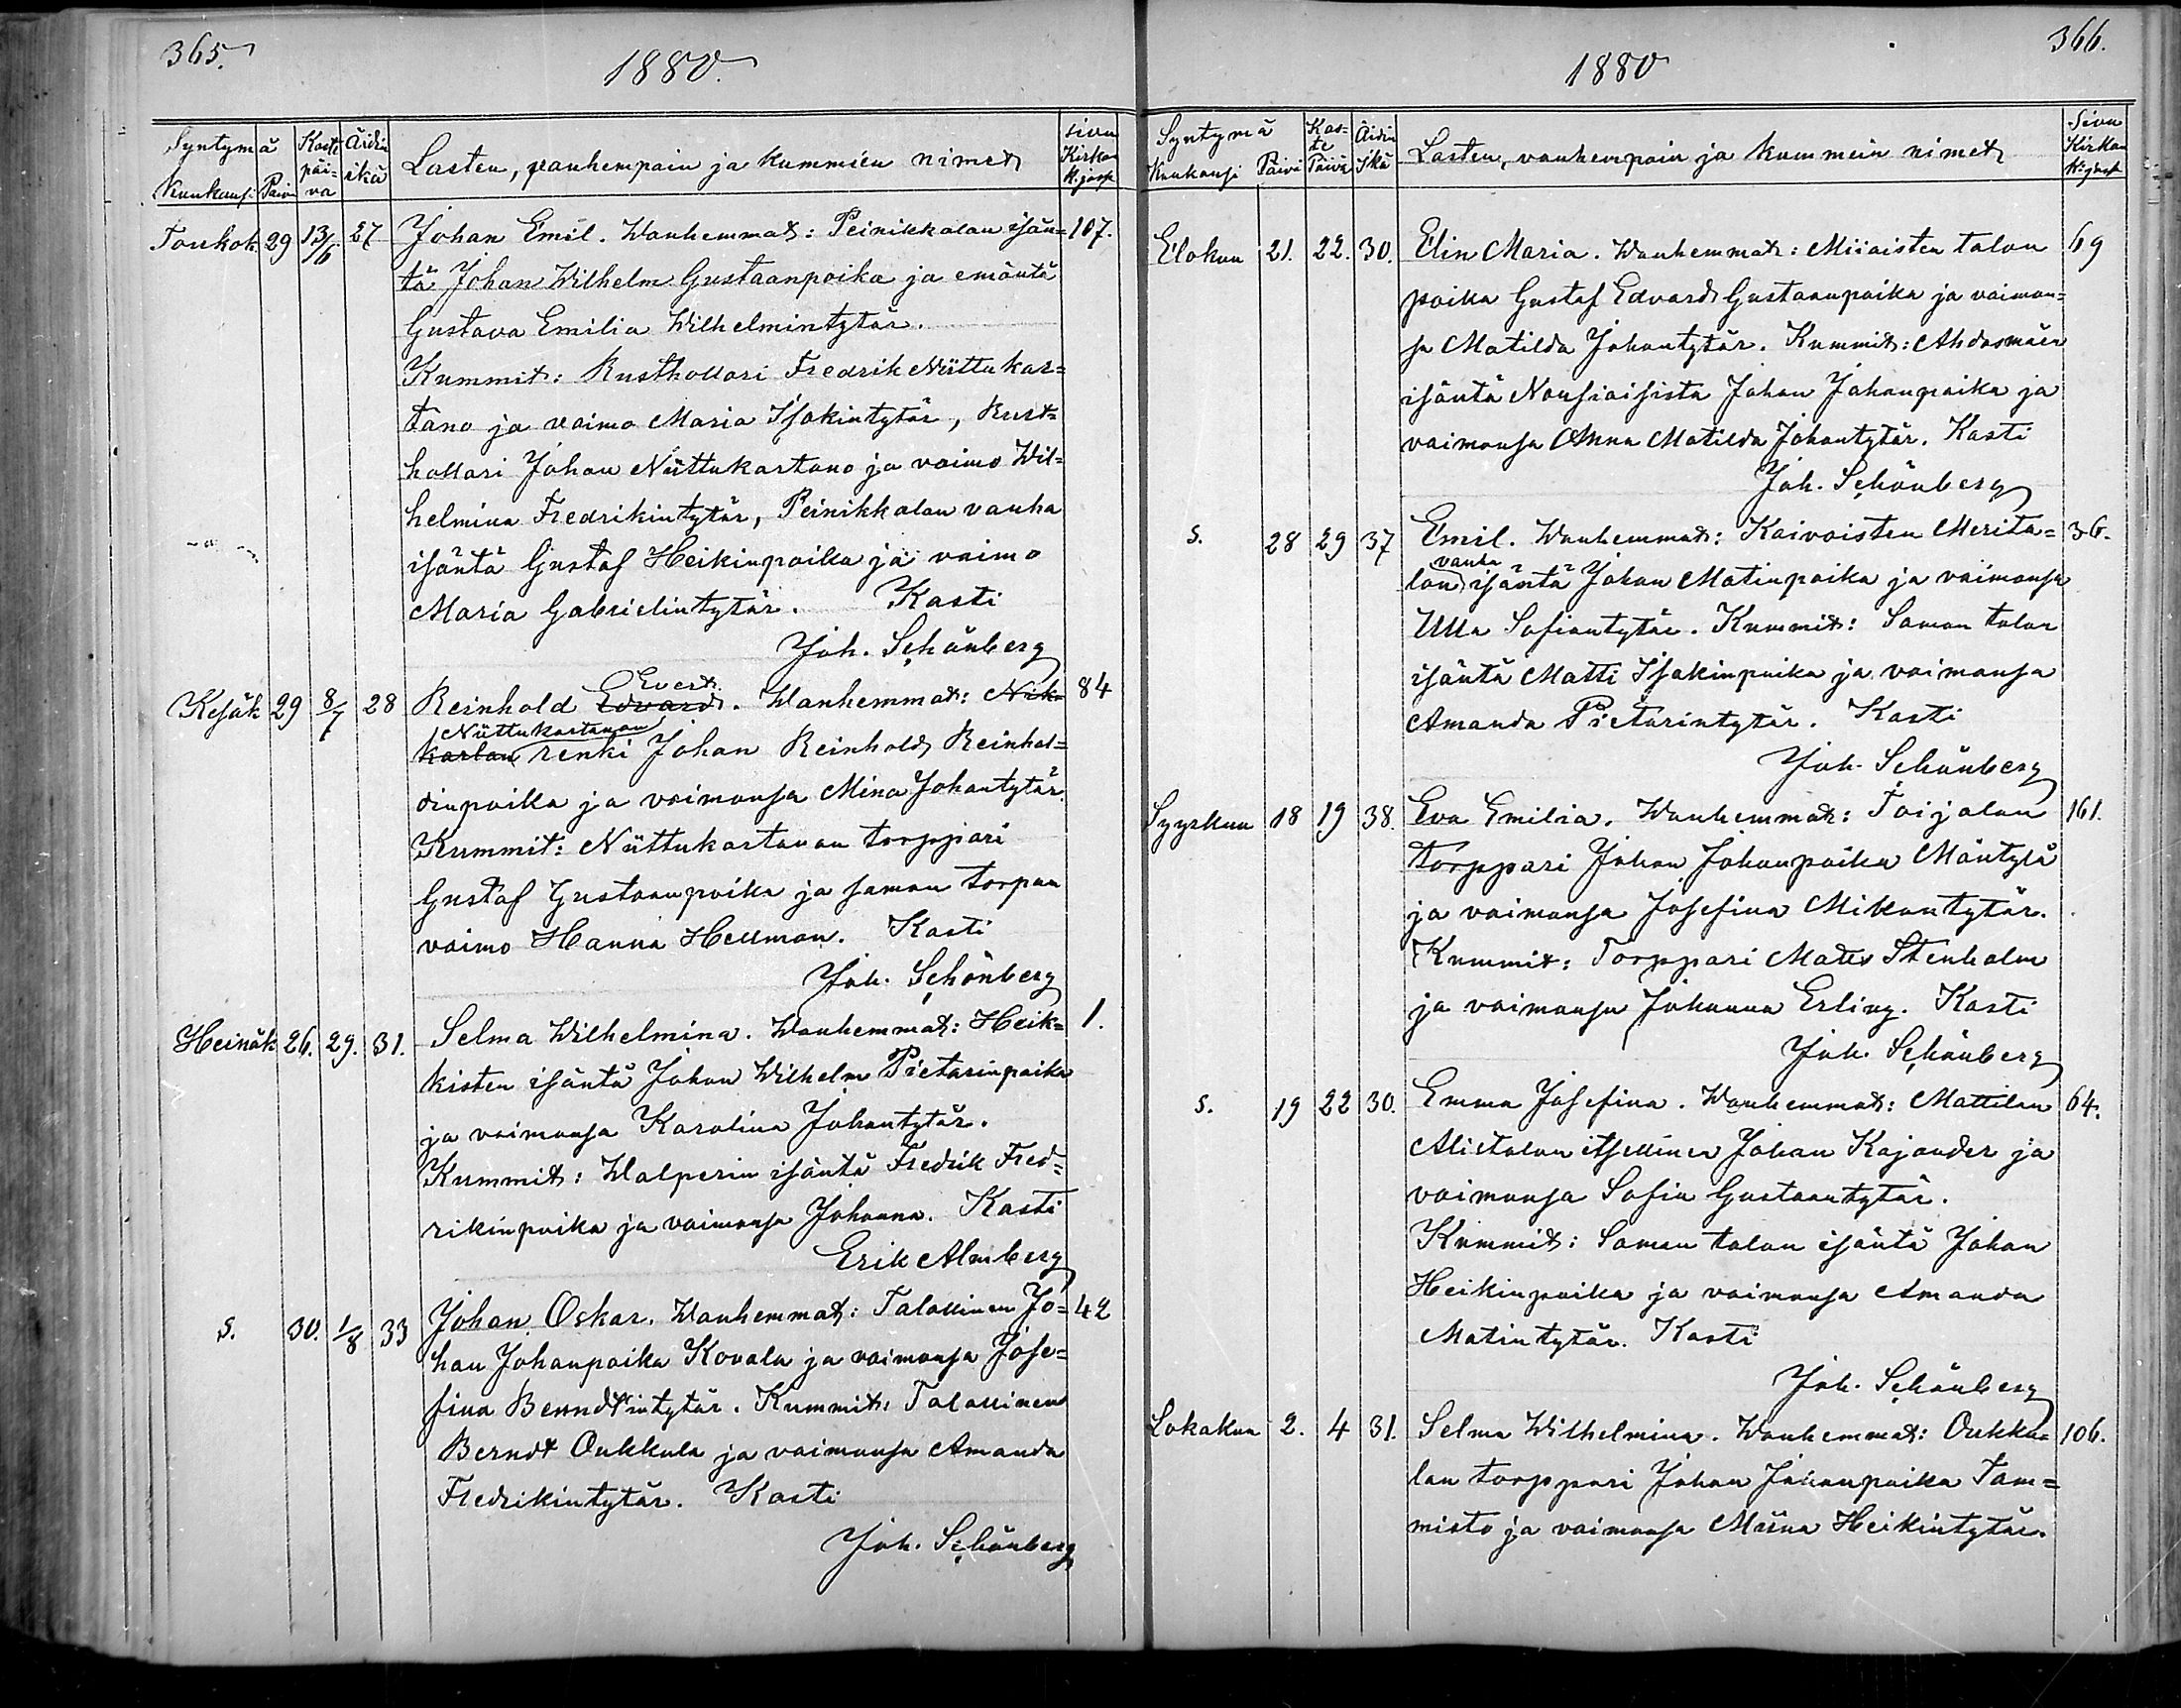 365.
1880.
Syntymä Kaste Äidin
Kuukausi Päivä päivä ikä Lasten, vanhempain ja kummien nimet Sivu Kirkon K:jasa
Toukok. 29 13/6 27 Johan Emil. Wanhemmat: Peinikkalan isän= 107.
tä Johan Wilhelm Gustaanpoika ja emäntä
Gustava Emilia Wilhelmintytär.
Kummit: Rusthollari Fredrik Niittukar=
tano ja vaimo Maria Isakintytär, Rust=
hollari Johan Niittukartano ja vaimo Wil=
helmina Fredrikintytär, Peinikkalan vanha
isäntä Gustaf Heikinpoika ja vaimo
Maria Gabrielintytär. Kasti
Joh. Schönberg
Kesäk 29 8/7 28 Reinhold Edvard Evert. Wanhemmat: Nik= 84
karlan Niittukartanon renki Johan Reinhold Reinhol=
dinpoika ja vaimonsa Mina Johantytär.
Kummit: Niittukartanon torppari
Gustaf Gustaanpoika ja saman torpan
vaimo Hanna Hellman. Kasti
Joh. Schönberg
Heinäk 26. 29. 31. Selma Wilhelmina. Wanhemmat: Heik= 1.
kisten isäntä Johan Wilhelm Pietarinpoika
ja vaimonsa Karolina Johantytär.
Kummit: Walperin isäntä Fredrik Fred=
rikinpoika ja vaimonsa Johanna. Kasti
Erik Almberg
s. 30. 1/8 33 Johan Oskar. Wanhemmat: Talollinen Jo= 42
han Johanpoika Kovala ja vaimonsa Jose=
fina Berndtintytär. Kummit: Talollinen
Berndt Oukkula ja vaimonsa Amanda
Fredrikintytär. Kasti
Joh. Schönberg
366.
1880
Syntymä Kas=te Äidin
Kuukausi Päivä Päivä Ikä Lasten, vanhempain ja kummein nimet Sivu Kirkon K:jasa
Elokuu 21. 22. 30. Elin Maria. Wanhemmat: Miiaisten talon 69
poika Gustaf Edvard Gustaanpoika ja vaimon=
sa Matilda Johantytär. Kummit: Ahdasmäen
isäntä Nousiaisista Johan Johanpoika ja
vaimonsa Anna Matilda Johantytär. Kasti
Joh. Schönberg
s. 28 29 37 Emil. Wanhemmat: Kaivoisten Merita= 36.
lon vanha isäntä Johan Matinpoika ja vaimonsa
Ulla Sofiantytär. Kummit: Saman talon
isäntä Matti Isakinpoika ja vaimonsa
Amanda Pietarintytär. Kasti
Joh. Schönberg
Syyskuu 18 19 38. Eva Emilia. Wanhemmat: Toijalan 161.
torppari Johan Johanpoika Mäntylä
ja vaimonsa Josefina Mikontytär.
Kummit: Torppari Mats Stenholm
ja vaimonsa Johanna Erling. Kasti
Joh. Schönberg
s. 19 22 30. Emma Josefina. Wanhemmat: Mattilan 64.
Alietalon itsellinen Johan Kajander ja
vaimonsa Sofia Gustaantytär.
Kummit: Saman talon isäntä Johan
Heikinpoika ja vaimonsa Amanda
Matintytär. Kasti
Joh. Schönberg
Lokakuu 2. 4 31. Selma Wilhelmina. Wanhemmat: Oukku= 106.
lan torppari Johan Johanpoika Tam=
misto ja vaimonsa Miina Heikintytär.